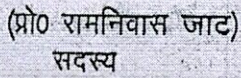 (प्रो0 रामनिवास जाट)
सदस्य